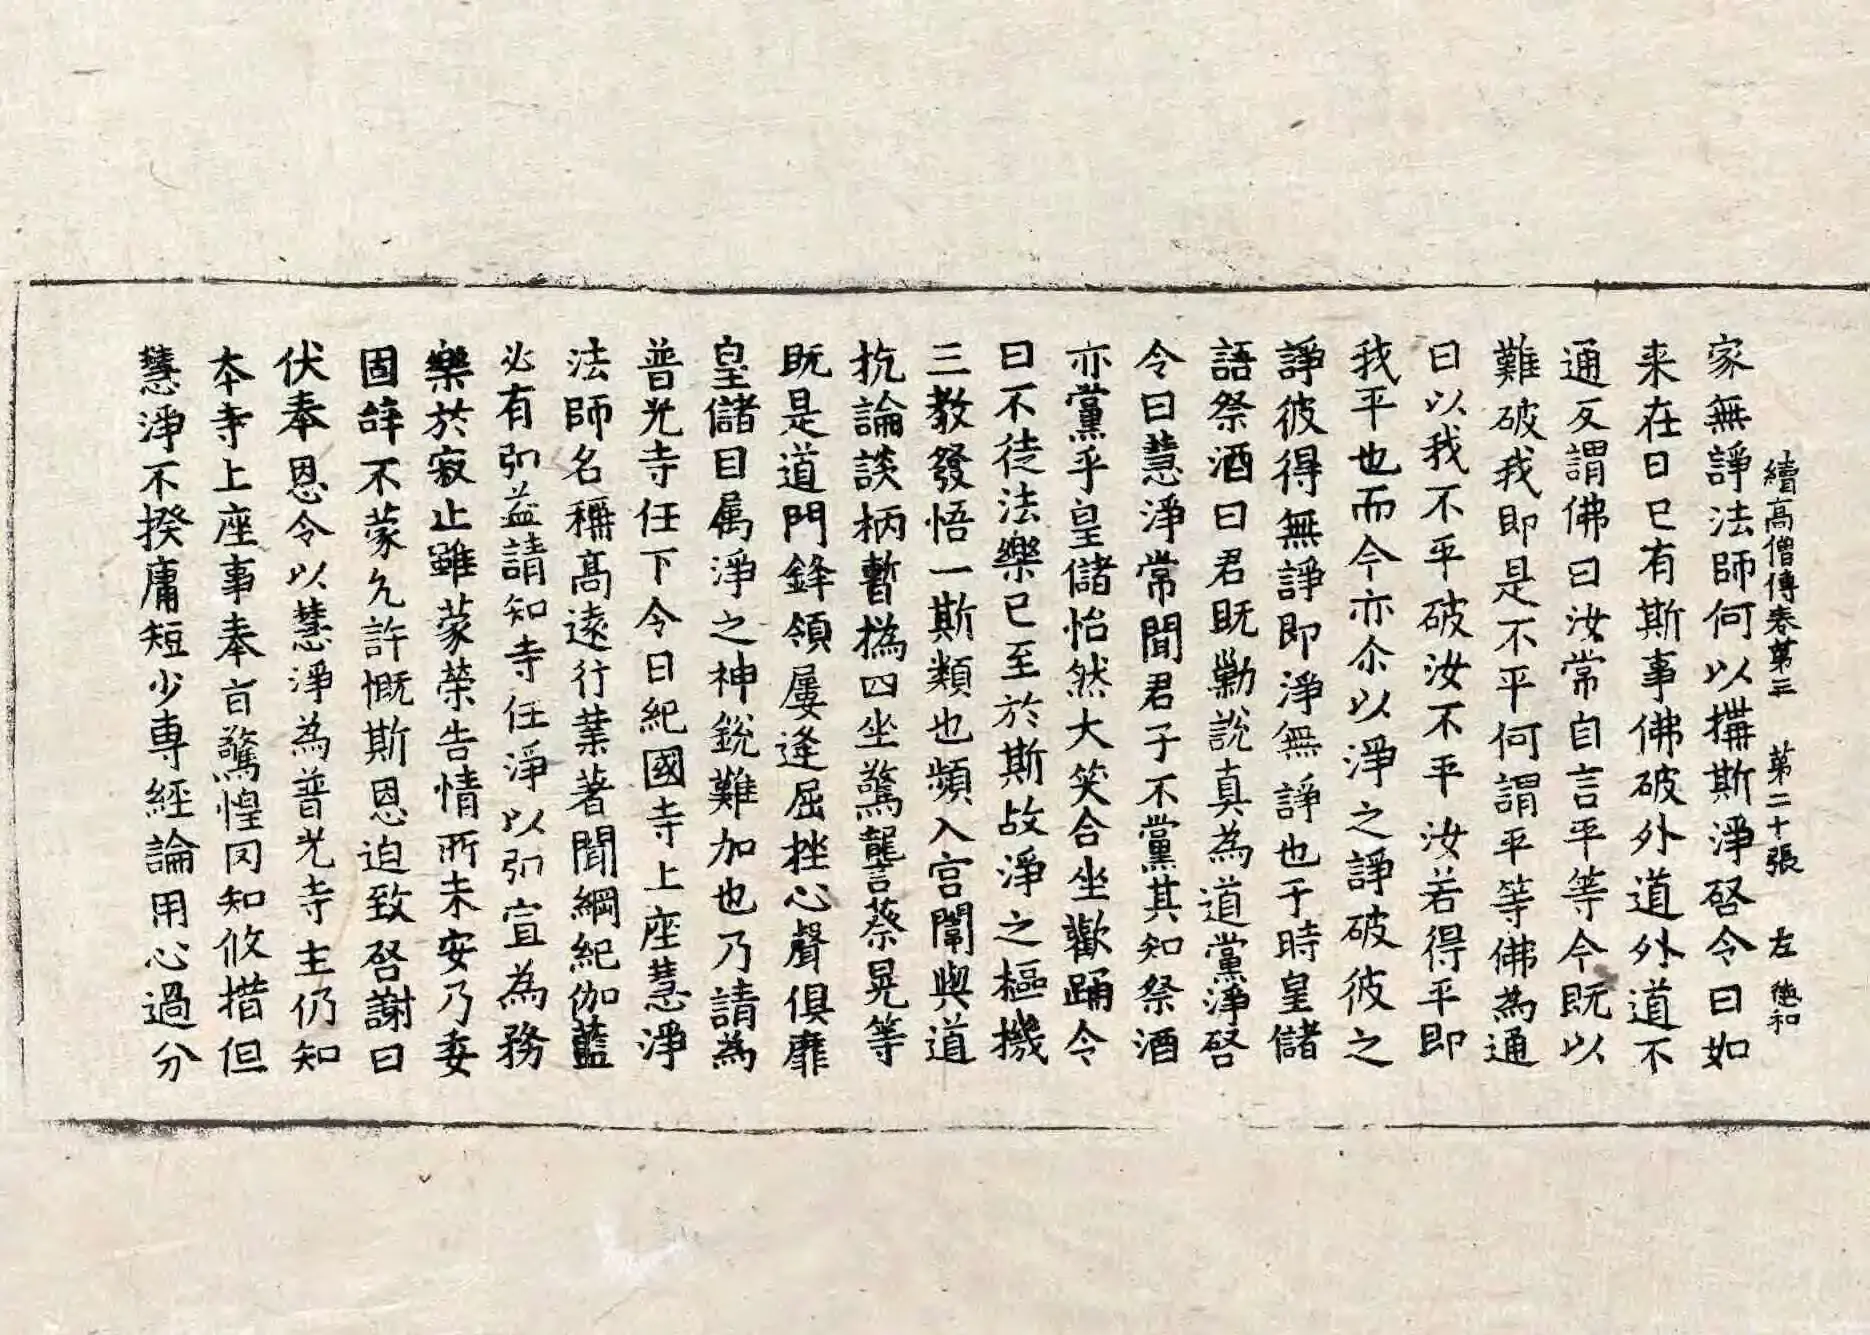 續高僧傳卷第三 第二十張 左 德和
家無諍法師何以搆斯淨啓令曰如
来在日已有斯事佛破外道外道不
通反謂佛曰汝常自言平等今既以
難破我即是不平何謂平等佛為通
曰以我不平破汝不平汝若得平即
我平也而今亦尒以淨之諍破彼之
諍彼得無諍即淨無諍也于時皇儲
語祭酒曰君既勦說真為道黨淨啓
令曰慧淨常聞君子不黨其知祭酒
亦黨乎皇儲怡然大笑合坐歡踊令
曰不徒法樂已至於斯故淨之樞機
三教發悟一斯類也頻入宮闈與道
抗論談柄暫撝四坐驚讋蔡晃等
既是道門鋒領屢逢屈挫心聲俱靡
皇儲目属淨之神銳難加也乃請為
普光寺任下令曰紀國寺上座慧淨
法師名稱高遠行業著聞綱紀伽藍
必有弘益請知寺任淨以弘宣為務
樂於寂止雖蒙榮告情所未安乃委
固辝不蒙允許慨斯恩迫致啓謝曰
伏奉恩令以慧淨為普光寺主仍知
本寺上座事奉旨驚惶罔知攸措但
慧淨不揆庸短少專經論用心過分